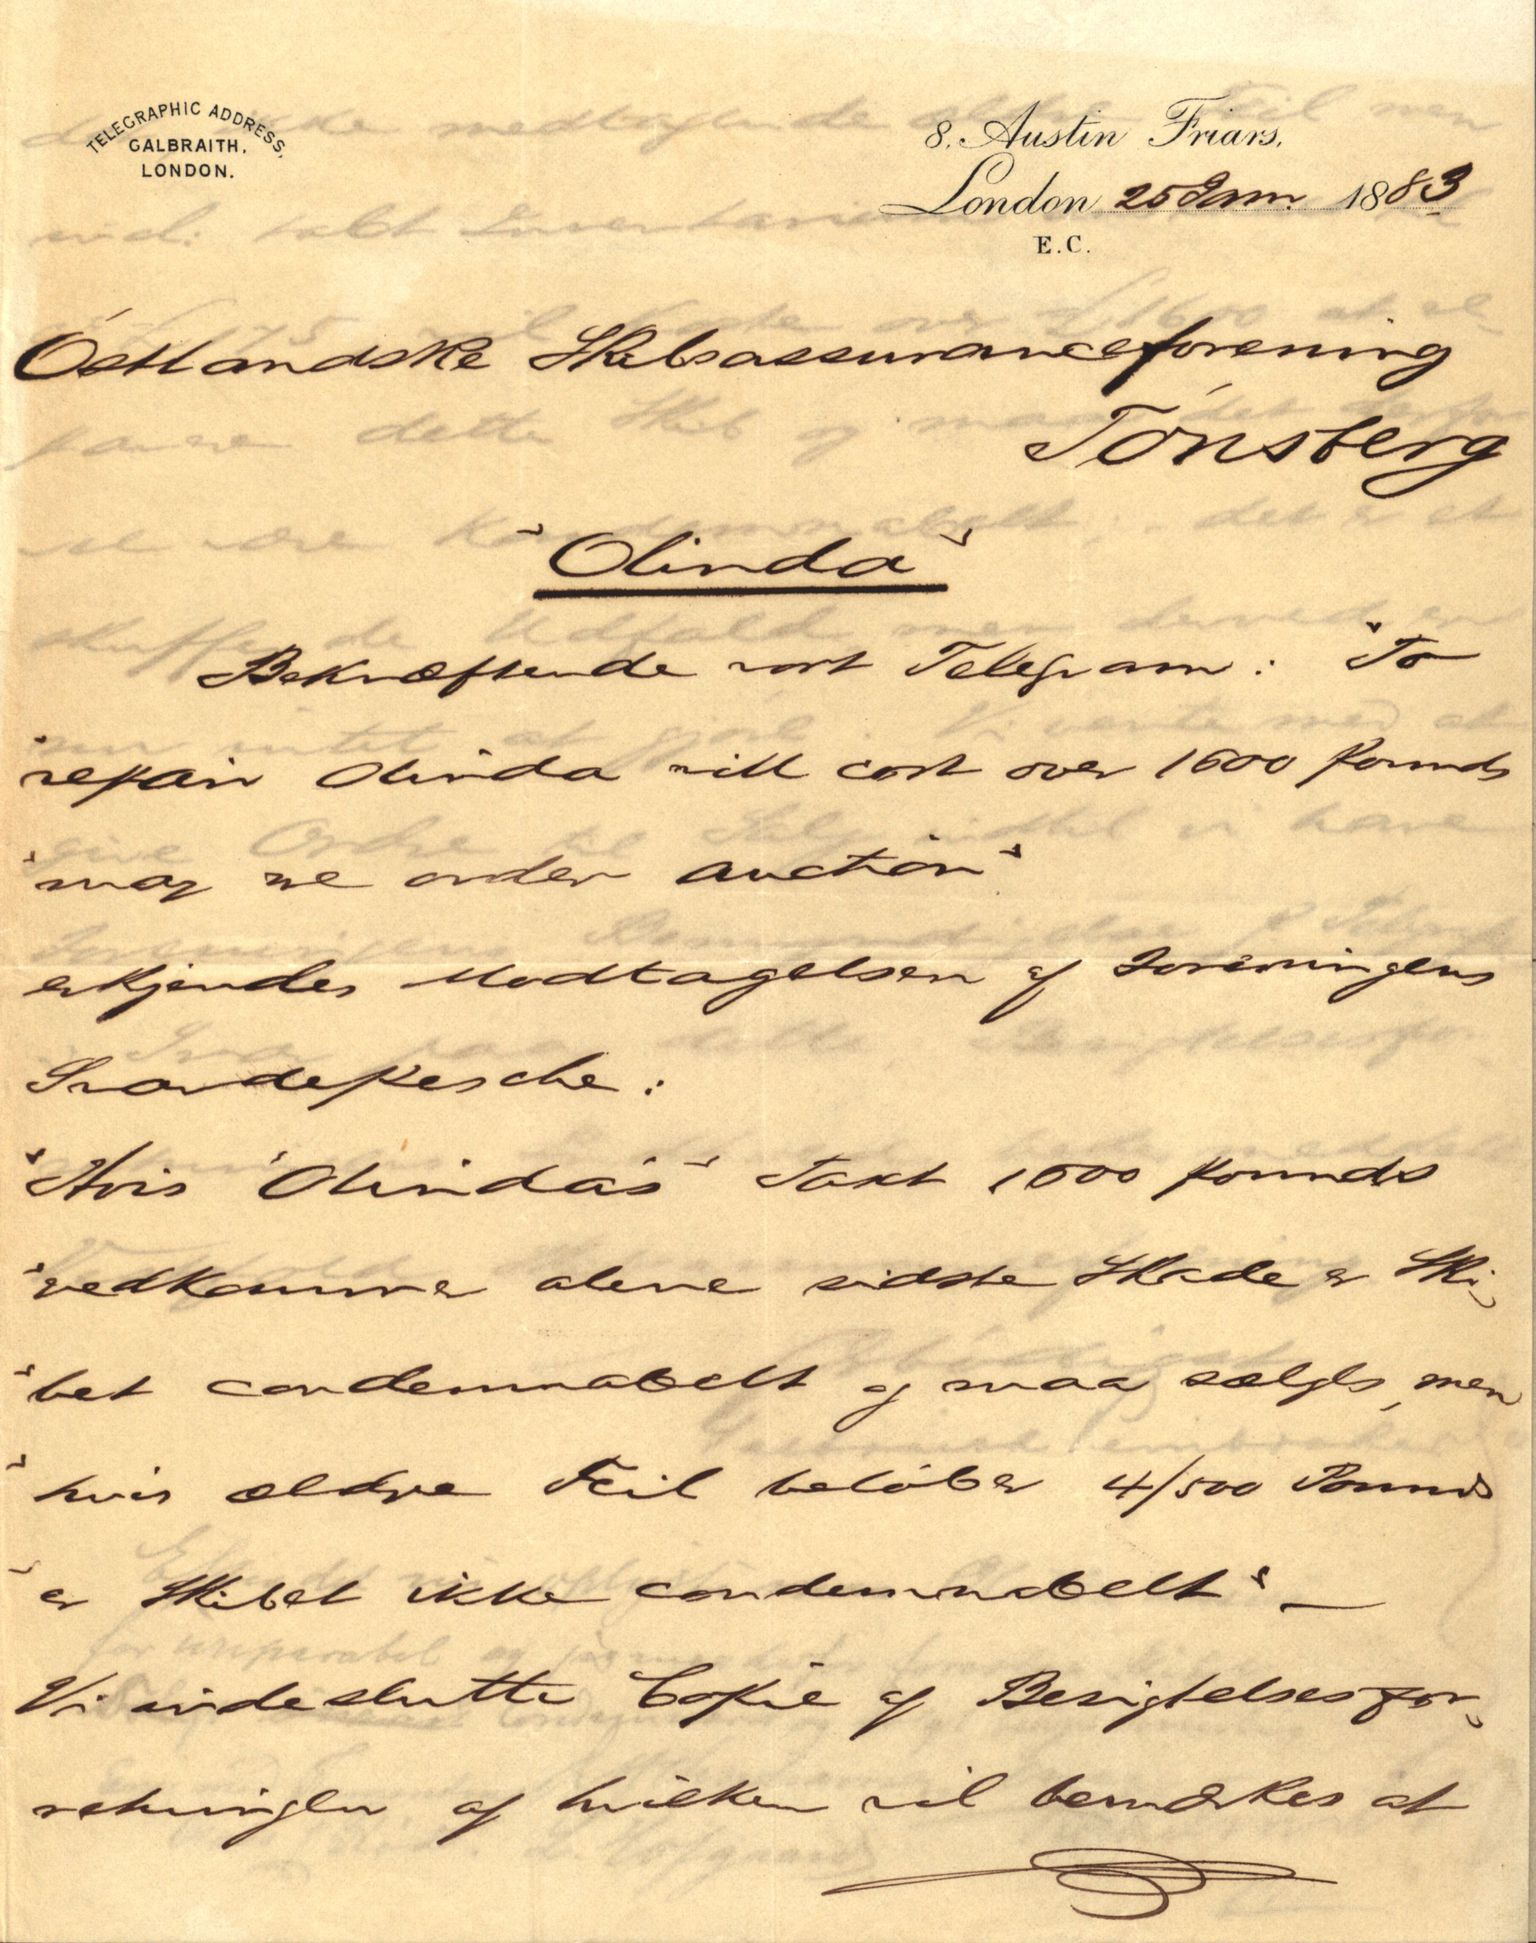 TELEGRAPHIC ADDRESS,
GALBRAITH,
LONDON.
8. Austin Friars,
London 25 Jan. 1883
E.C.
Östlandske Skibsassuranceforening
Tönsberg
"Olinda"
Bekræftende vort Telegram: "To
"repair Olinda will cost over 1600 pounds
"may we order auction"
erkjendes Modtagelsen af Foreningens
Svardepesche:
"Hvis 'Olindas' Taxt 1600 pounds
"vedkommer alene sidste Skade er Ski-
"bet condemnabelt og maa sælges, men
"hvis ældre Feil belöber 4/500 Pounds
"er Skibet ikke condemnabelt" —
Vi indeslutte Copie af Besigtelsesfor-
retningen af hvilken vil bemærkes at